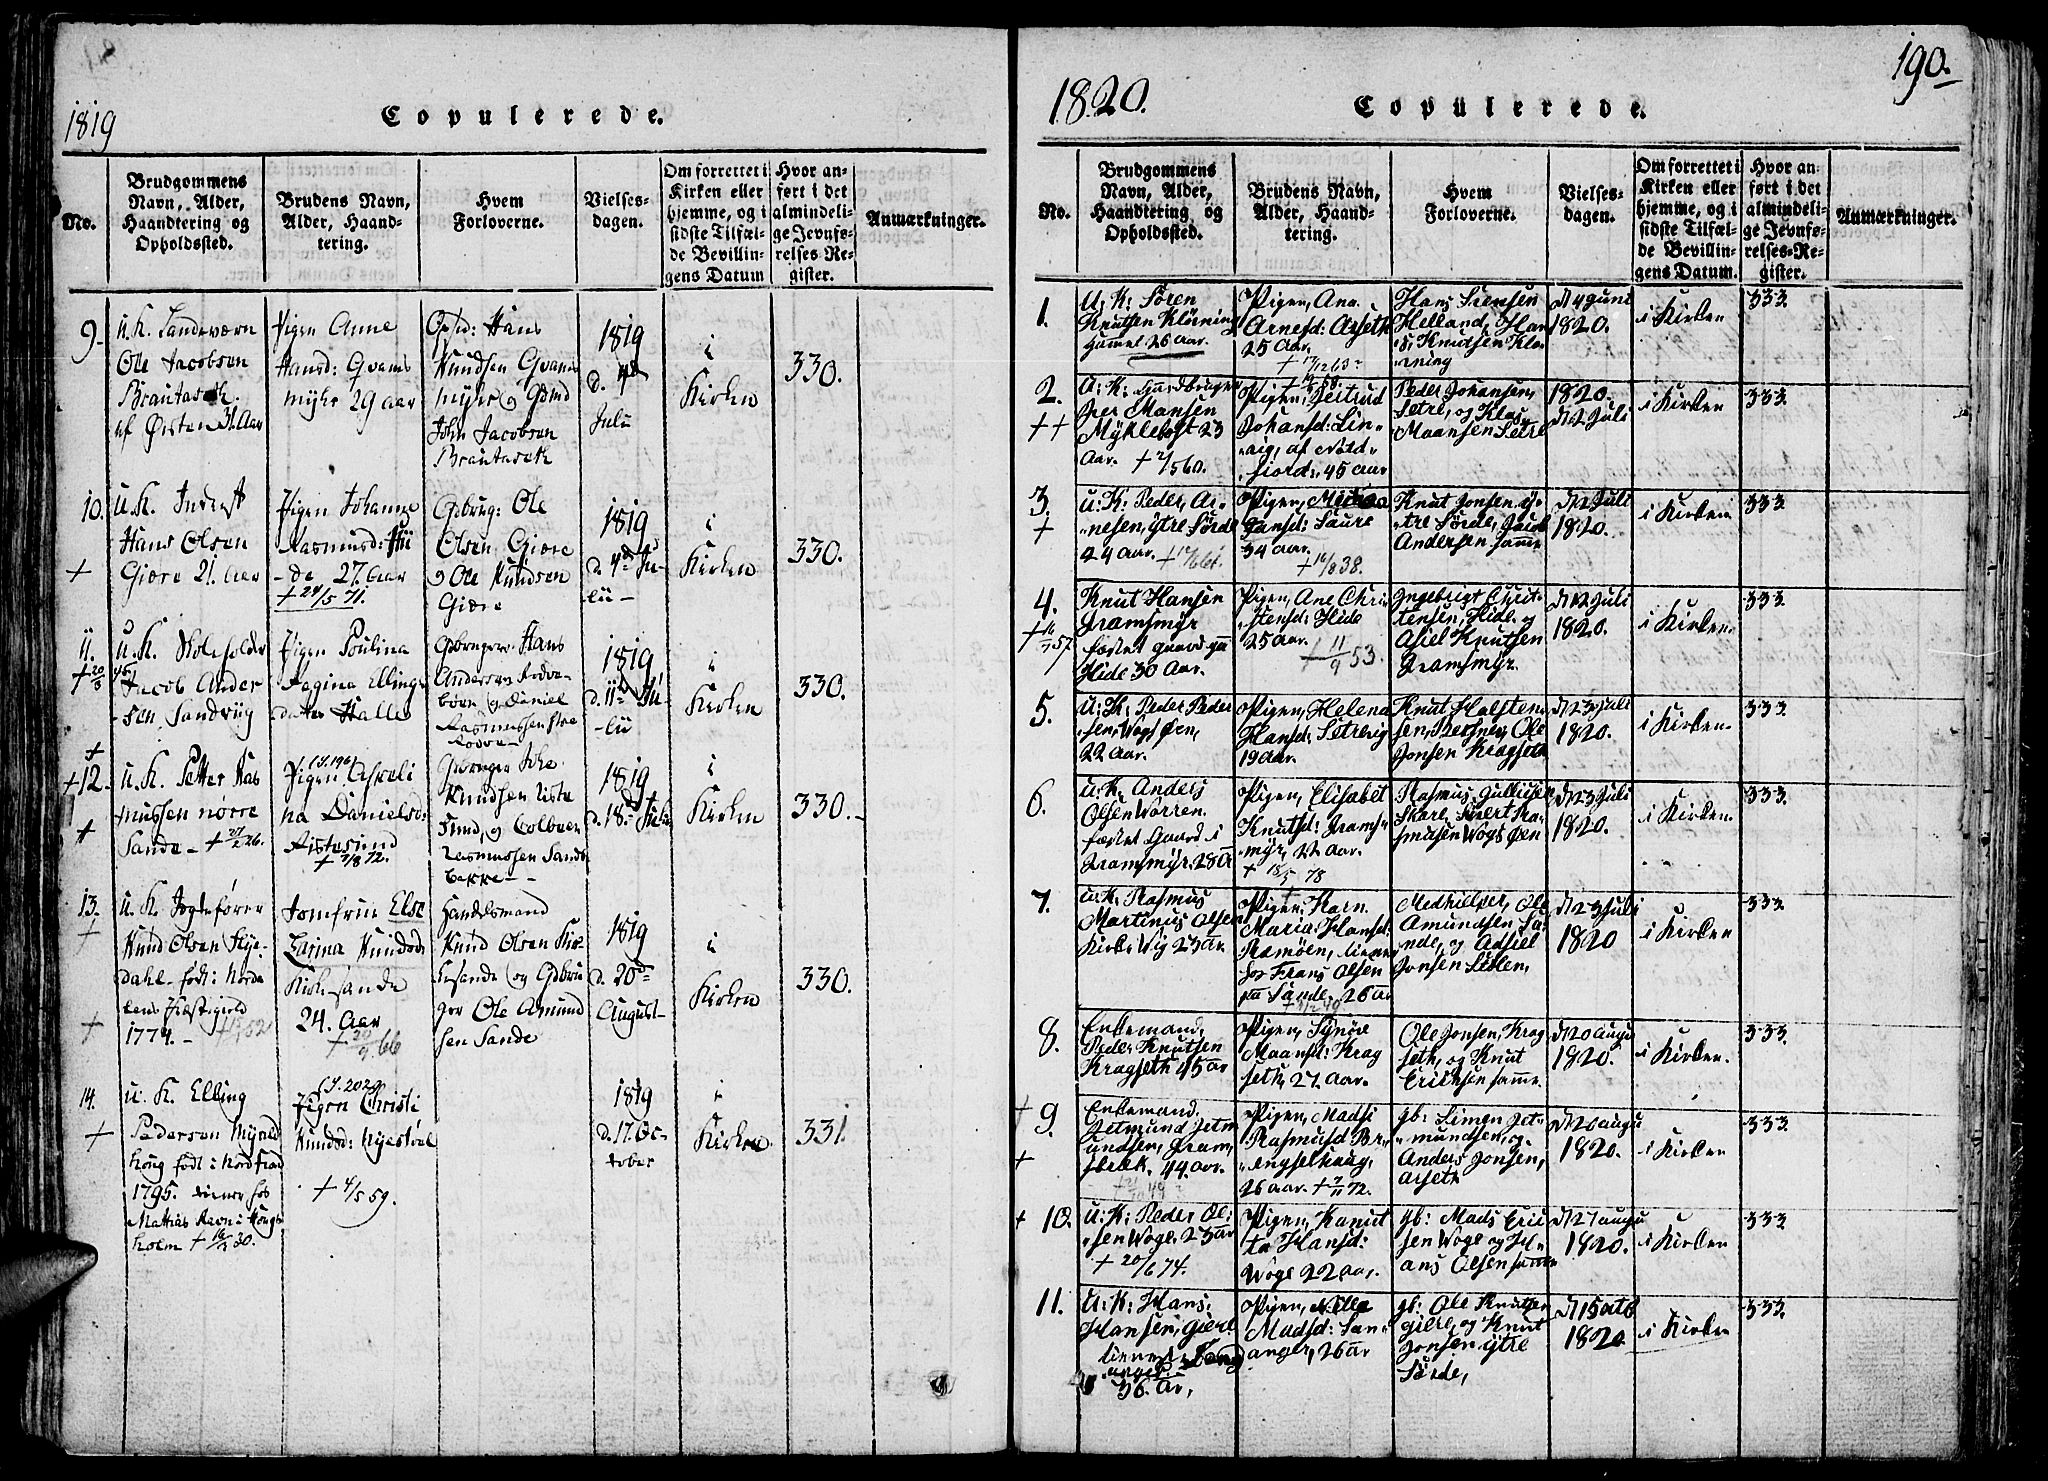 1819
Copulerede.
No.
Brudgommens
Navn, Alder,
Haandtering og
Opholdssted.
Brudens Navn,
Alder, Haand-
tering.
Hvem
Forloverne.
Vielses-
dagen.
Om forrettet i
Kirken eller
hjemme, og i
sidste Tilfæl-
de Bevillin-
gens Datum
Hvor an-
ført i det
almindeli-
ge Jevnfø-
relses-Re-
gister.
Anmærkninger.
9.
u. K. Landeværn
Ole Jacobsen
Brautaseth
af Ørsten 31 Aar
Pigen Anne
Hansd: Gvams
myhr 29 aar
Opsid: Hans
Knudsen Gvams
myhr og Gbmd
John Jacobsen
Brautaseth
1819
d. 4de
Juli
i
Kirken
330.
10.
+
u. K. Inderst
Hans Olsen
Giære 21. Aar
Pigen Johanne
Rasmusd: Hii
-de 27. Aar
+ 24/5 71.
Gbrug: Ole
Olsen Giære
og Ole Knudsen
Giære
1819
d. 4de Ju-
lii-
i
Kirken
330.
11.
+ 20/3 45
u. K. Skoleholder
Jacob Ander
-sen Sandviig
Pigen Poulina
Regina Ellings
datter Halle
Gbrugere Hans
Andersen Rodve
børn og Daniel
Rasmussen
Rodve-
1819
d. 11te Ju-
-lii
i
Kirken
330.
+
+12.
+
u. K. Petter Ras
mussen nørre
Sande- + 27/2 26.
(S. 196)
Pigen Askeli
na Danielsd:
Ristesund
+ 7/8 72.
Gbrunger Johs
Knudsen Riste
sund, og Colbeen
Rasmussen Sands
bakke--
1819
d. 18de Julii
i
Kirken
330.
13.
+
+
u. K. Fogtefører
Knud Olsen Stye-
dahl- født i Norda
lens Præstegield
1774.-
Jomfrue Else
Larina Knudsd:
Kirkesande
24. Aar
+ 20/9 66
Handelsmand
Knud Olsen Kir
kesande og Gdbru
ger Ole Amund
sen Sande
1819
d. 20de
August-
i
Kirken
330.
14.
+
u. K. Elling
Pedersen Myrld
houg født i Nordfiord
1795. tiener hos
Mathias Ravn i Kongs
holm + 16/3 30.
(S. 202)
Pigen Christi
Knudsd: Myestøel
+ 4/5 59.
1819
d. 17. Oc-
tober
i
Kirken
331.
190.
1820.
Copulerede.
No.
Brudgommens
Navn, Alder,
Haandtering og
Opholdssted.
Brudens Navn,
Alder, Haand-
tering.
Hvem
Forloverne.
Vielses-
dagen.
Om forrettet i
Kirken eller
hjemme, og i
sidste Tilfæl-
de Bevillin-
gens Datum.
Hvor an-
ført i det
almindeli-
ge Jevnfø-
relses-Re-
gister.
Anmærkninger.
1.
U. K: Sören
Knutsen Klörning
Gammel 26 Aar.
Pigen, Ana
Arnesd: Arseth
25 Aar.
+ 17/12 63
Hans Srensen
Helland, Han
s: Knutsen Klø
rning
d 4 Juni
1820.
i Kirken
333.
2.
++
U: K: Gaardbruger
Iver Mansen
Mÿklebost 23
Aar. + 2/5 60.
Pigen, Gertrud
Johansd: Lin-
vig, af Vold-
fiord: 45 aar
Peder Johansen,
Setre, og Klas
Maansen Setre
1820.
d 2 Juli
i Kirken
333.
3.
+
u: K: Peder Ar-
nesen, ÿtre Sörde
44 aar.
Pigen,
Hansd: Saure
34 aar.
+ 16/8 38.
Knut Jonsen, ÿ-
tre Sörde, Jacob
Andersen samme
d 2 Juli
1820.
i Kirken
333.
4.
+ 16/7 57
Knut Hansen
Gramsmÿr
fæstet gaard paa
Hide 30 Aar.
Pigen, Ane Chri
stensd: Hide
25 Aar.
+ 11/9 53.
Ingebrigt Christ
tensen, Hide, og
Asiel Knutsen
Gramsmÿr.
d 2 Juli
1820.
i Kirken.
333.
5.
u: K: Peder Peder
sen, Wogs Øen,
22 aar.
Pigen, Helena
Hansd: Setrevig
19 aar.
Knut Halsten
sen, Bersnes, Ole
Jonsen Kragseth
d 23 Juli
1820.
i Kirken.
333.
6.
u: K, Anders
Olsen Worren,
fæstet Gaard i
Gramsmÿr, 28 a
Pigen, Elisabet
Knutsd: Grams-
mÿr, 22 Aar.
+ 18/5 78
Rasmus Gulliksen
Skare, Sivert Ra-
smusen Wogs Øen
d 23 Juli
1820.
i Kirken.
333.
7.
u: K, Rasmus
Martinus Olsen
Kirke Wig 23 ar.
Pigen: Karn
Maria: Hansd:
Ramöen, tiener
for Frans Olsen
paa Sande, 26 ar
Medhielper, Ole
Amundsen Sa-
nde, og Adsiel
Jonsen Listen,
d 23 Juli
1820
i Kirken
333.
8.
Enkemand,
Peder Knutsen
Kragseth 45 ar
Pigen, Synöe
Maansd: Krag
seth, 27. Aar.
Ole Jonsen, Krag
seth, og Knut
Ericksen samme
d 20 augu
1820.
i Kirken.
333.
+ 9.
+
Enkemand,
Jetmund Jetm
undsen, Gram,
sbrek. 44 ar.
Pigen, Madsi
Rasmusd Br-
engselhaug,
26 aar. + 7/11 72.
gb: Simen Jet-
mundsen, og
Anders Jonsen,
Arseth
d 20 augu
1820.
i Kirken
333.
+ 10.
u. K: Peder Ol:
sen Woge 23 ar
+ 20/6 74.
Pigen, Kanut
ta Hansd:
Woge 22 aar.
gb: Mads Eric
sen Woge og H-
ans Olsen samme
d 27 augu
1820.
i Kirken
333.
11.
u: K: Hans:
Hansen, Giere
tiener i Sand
anger:
36. ar,
Pigen, Nille
Madsd: San-
anger, 26 ar
gb: Ole Knutsen
giere, og Knut
Jonsen ÿtre
Sörde,
d 15 octb
1820
i Kirken
333.